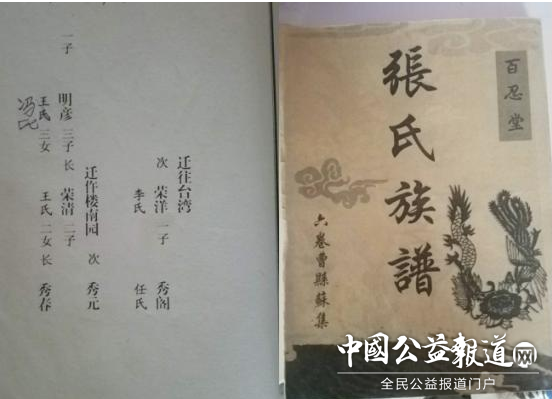 迁往台湾
次 荣洋 一子 秀阁
李氏 任氏
迁仵楼南园 次 秀元
一子 明彦 三子 长 荣清 二子
王氏 三女 王氏 二女 长 秀春
冯氏
百忍堂
張氏族譜
六卷曹縣蘇集
中國公益報道网
全民公益报道门户